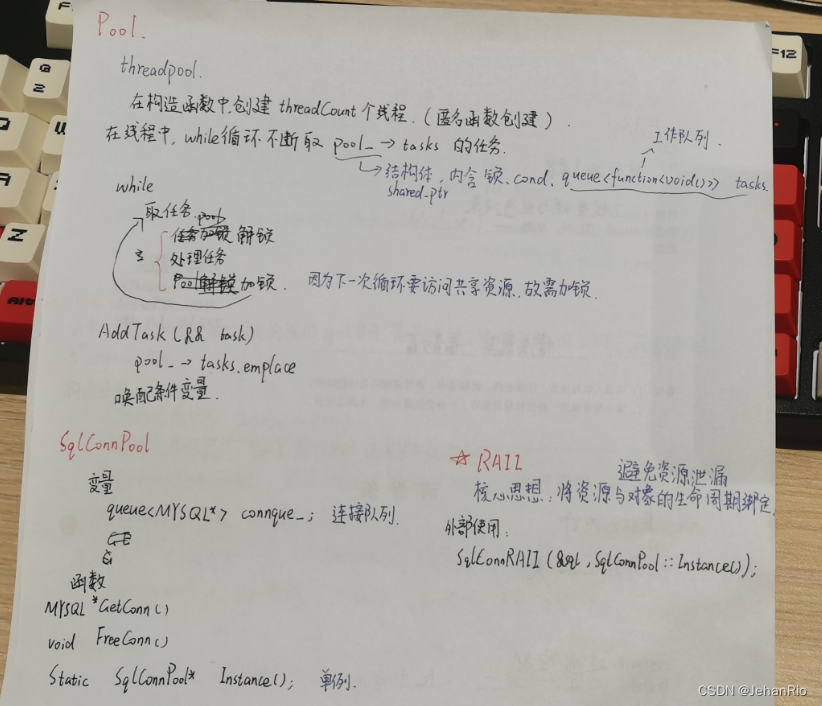 Pool.
threadpool.
在构造函数中,创建 threadCount 个线程.(匿名函数创建).
在线程中, while循环不断取 pool_ → tasks 的任务.
工作队列.
结构体, 内含 锁, cond, queue<function<void()>> tasks.
shared_ptr
while
取任务
pool 解锁
处理任务
Pool 加锁. 因为下一次循环要访问共享资源, 故需加锁.
AddTask (&& task)
pool_ → tasks.emplace
唤配条件变量.
SqlConnPool
变量
queue<MYSQL*> connque_; 连接队列.
函数
MYSQL *GetConn()
void FreeConn()
Static SqlConnPool* Instance(); 单例.
☆ RAII 避免资源泄漏
核心思想: 将资源与对象的生命周期绑定.
外部使用:
SqlConnRAII (&sql, SqlConnPool::Instance());
F12
Q
2
W
Z
Alt
CSDN @JehanRio